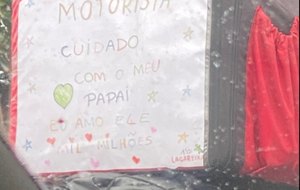 MOTORISTA
CUIDADO
COM O MEU
PAPAÍ
EU AMO ELE
MIL MILHÕES